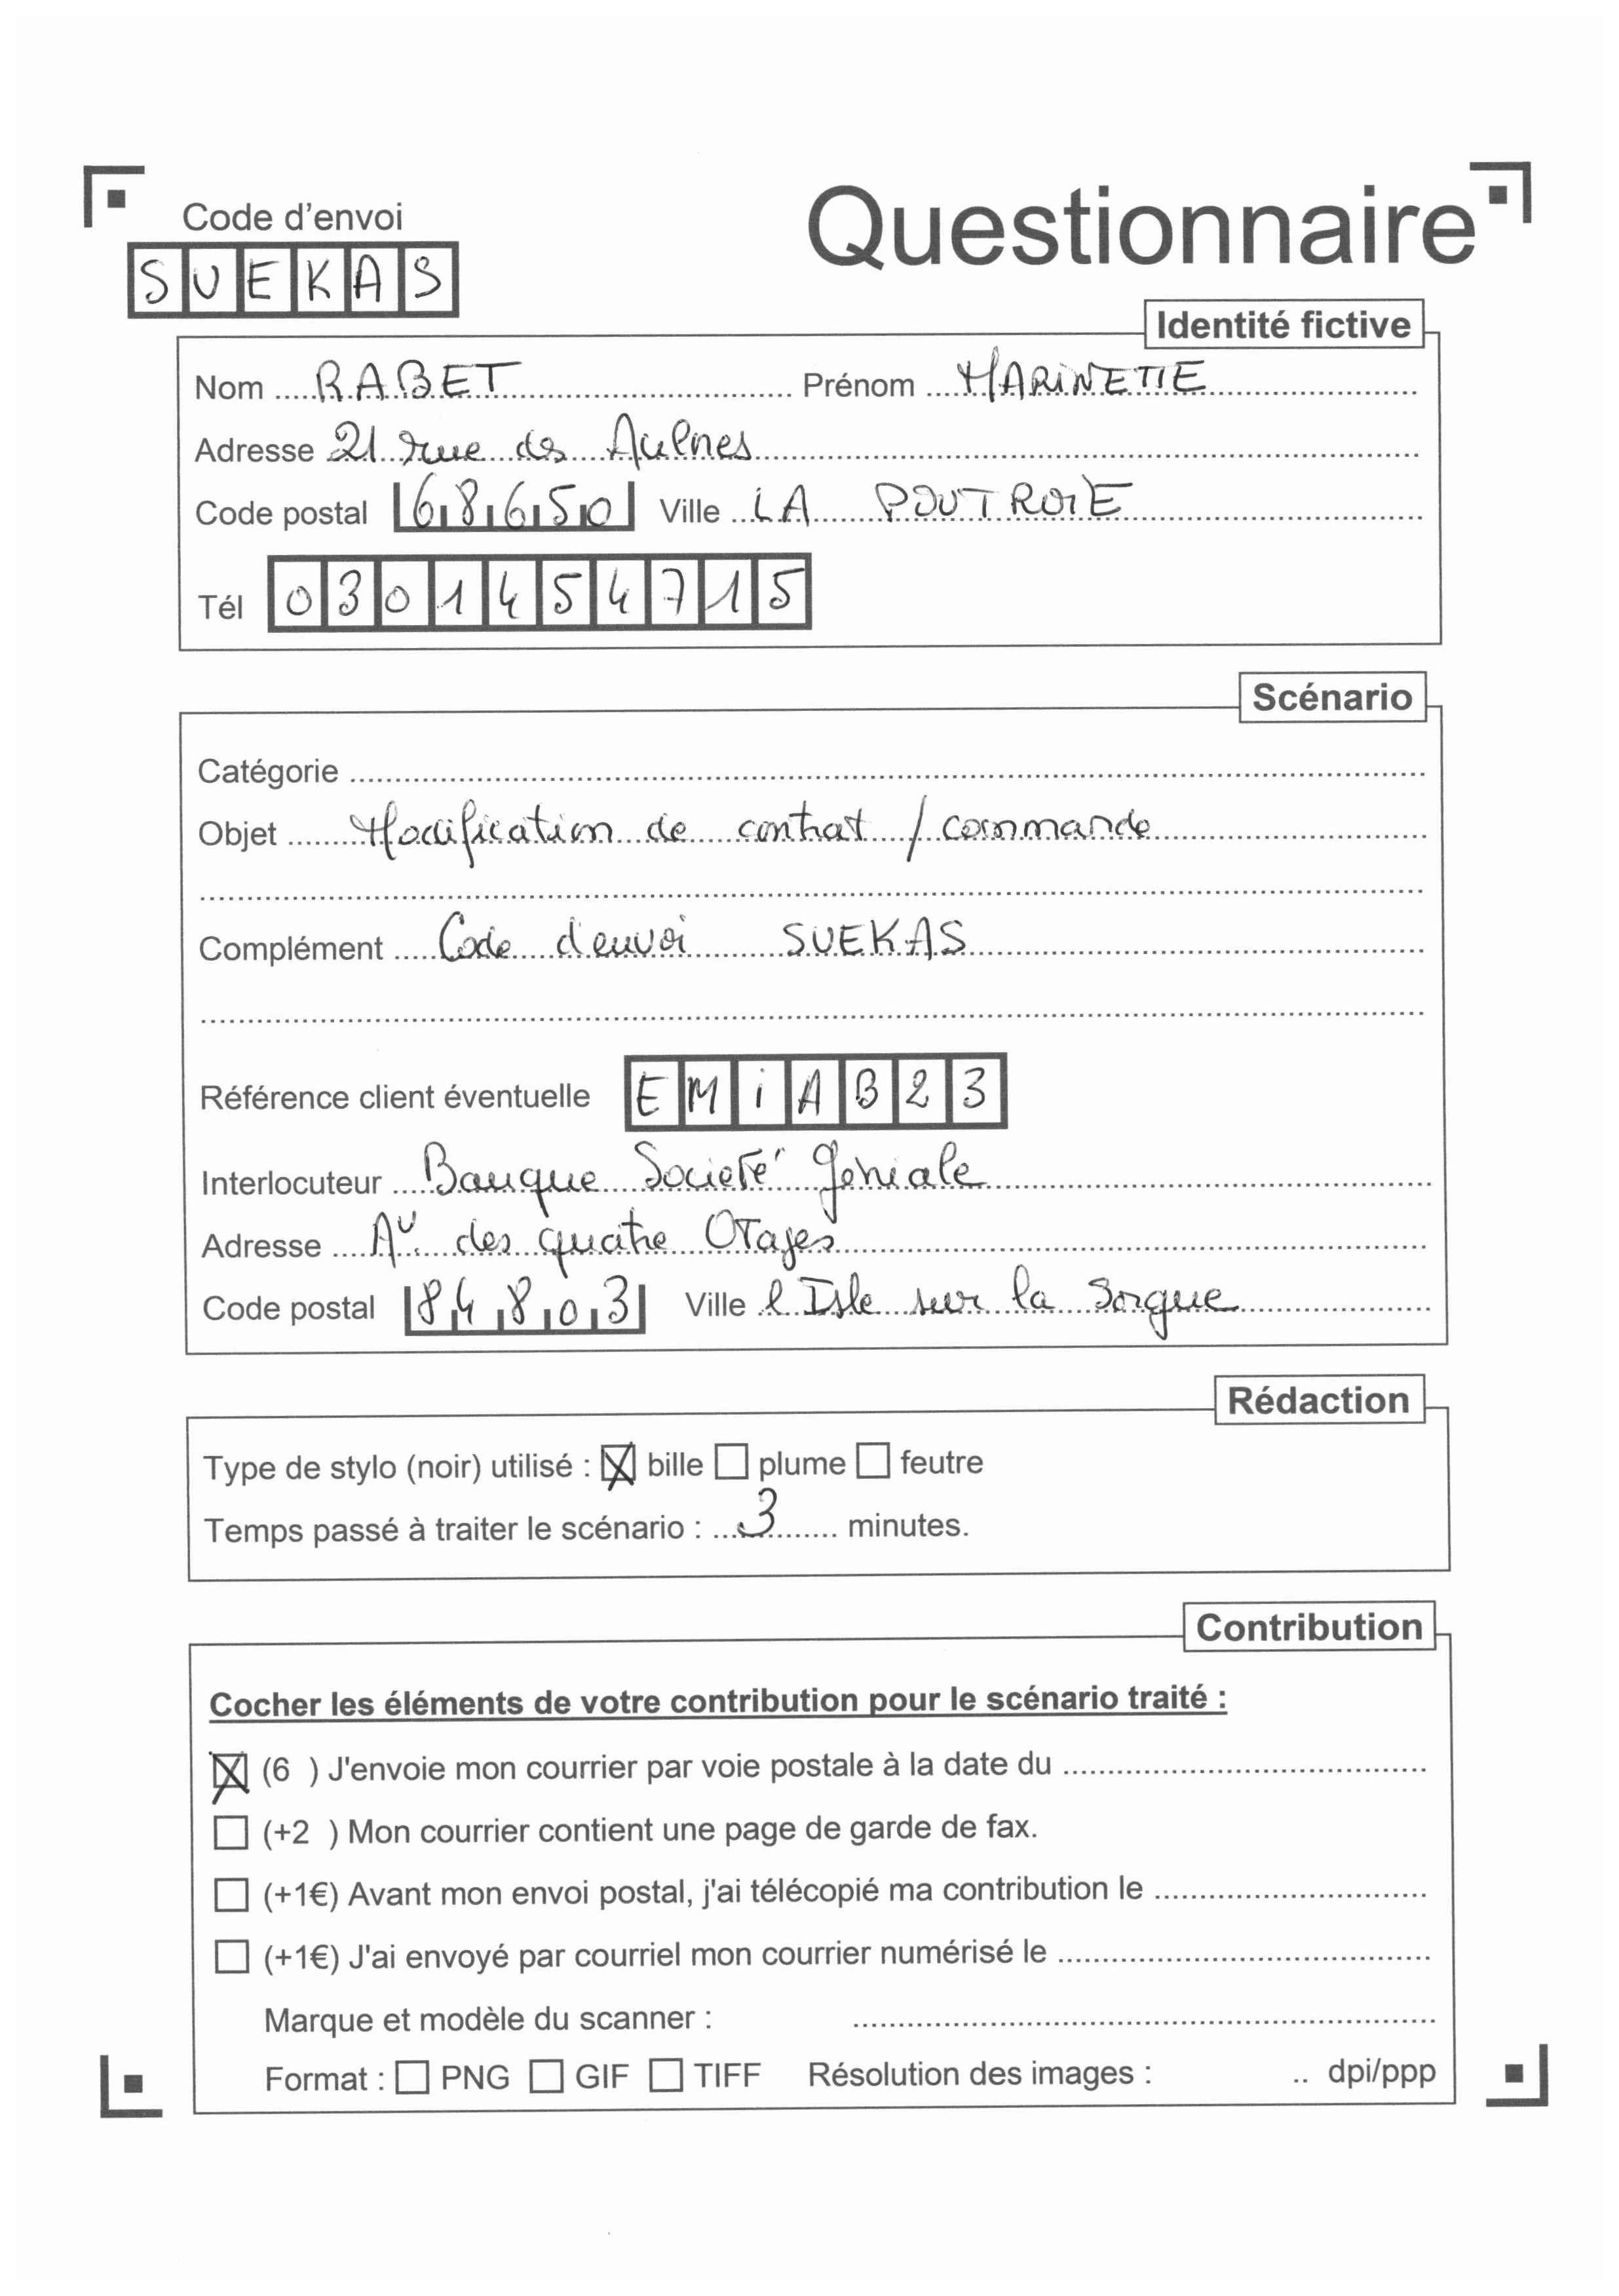 Code d'envoi
Questionnaire
SUEKAS
Identité fictive
Nom RABET Prénom MARINETTE
Adresse 21 rue des Aulnes
Code postal 68650 Ville LA POUTROIE
Tél 0301454715
Scénario
Catégorie
Objet Modification de contrat / commande
Complément Code d'envoi SUEKAS
Référence client éventuelle EMiAB23
Interlocuteur Banque Societé Géniale
Adresse Av. des quatre Otages
Code postal 84803 Ville l Isle sur la Sorgue
Rédaction
Type de stylo (noir) utilisé : ☒ bille ☐ plume ☐ feutre
Temps passé à traiter le scénario : 3 minutes.
Contribution
Cocher les éléments de votre contribution pour le scénario traité :
☒ (6 ) J'envoie mon courrier par voie postale à la date du
☐ (+2 ) Mon courrier contient une page de garde de fax.
☐ (+1€) Avant mon envoi postal, j'ai télécopié ma contribution le
☐ (+1€) J'ai envoyé par courriel mon courrier numérisé le
Marque et modèle du scanner :
Format : ☐ PNG ☐ GIF ☐ TIFF Résolution des images : .. dpi/ppp